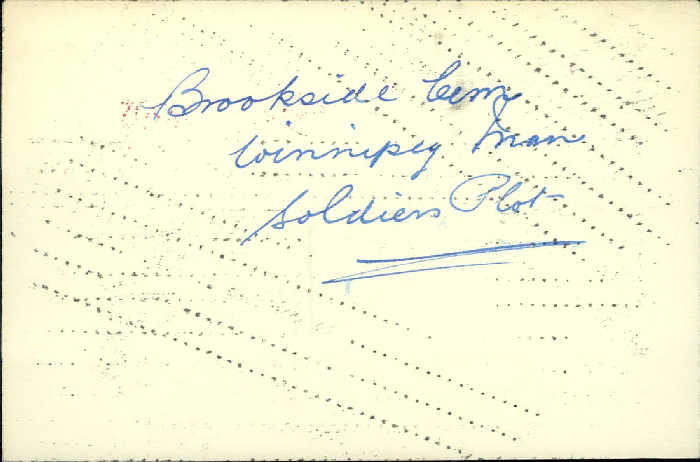 Brookside Cem
Winnipeg Man
Soldiers Plot